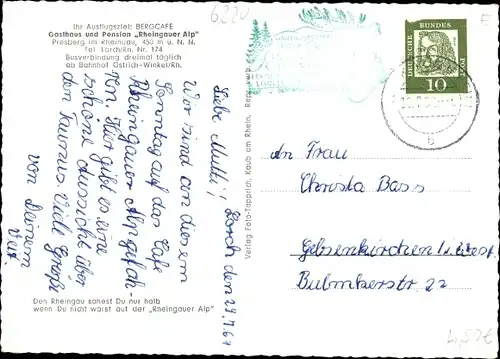 Ihr Ausflugsziel: BERGCAFE
Gasthaus und Pension „Rheingauer Alp"
Presberg im Rheingau, 450 m ü. N. N.
Tel. Lorch/Rh. Nr. 174
Busverbindung dreimal täglich
ab Bahnhof Östrich-Winkel/Rh.
6220
Lorch, den 29.7.61
Liebe Mutti!
Wir sind an diesem
Sonntag auf das Cafe
Rheingauer Alp gefah-
ren. Hier gibt es eine
schöne Aussicht über
den Taunus. Viele Grüße
von Deinem
Den Rheingau sahest Du nur halb
wenn Du nicht warst auf der „Rheingauer Alp"
Verlag Foto-Tapprich, Kaub am Rhein.
DEUTSCHE
BUNDES
POST
10
b
An Frau
Christa Bass
Gelsenkirchen i. West.
Bulmkerstr. 22
4,50€
E